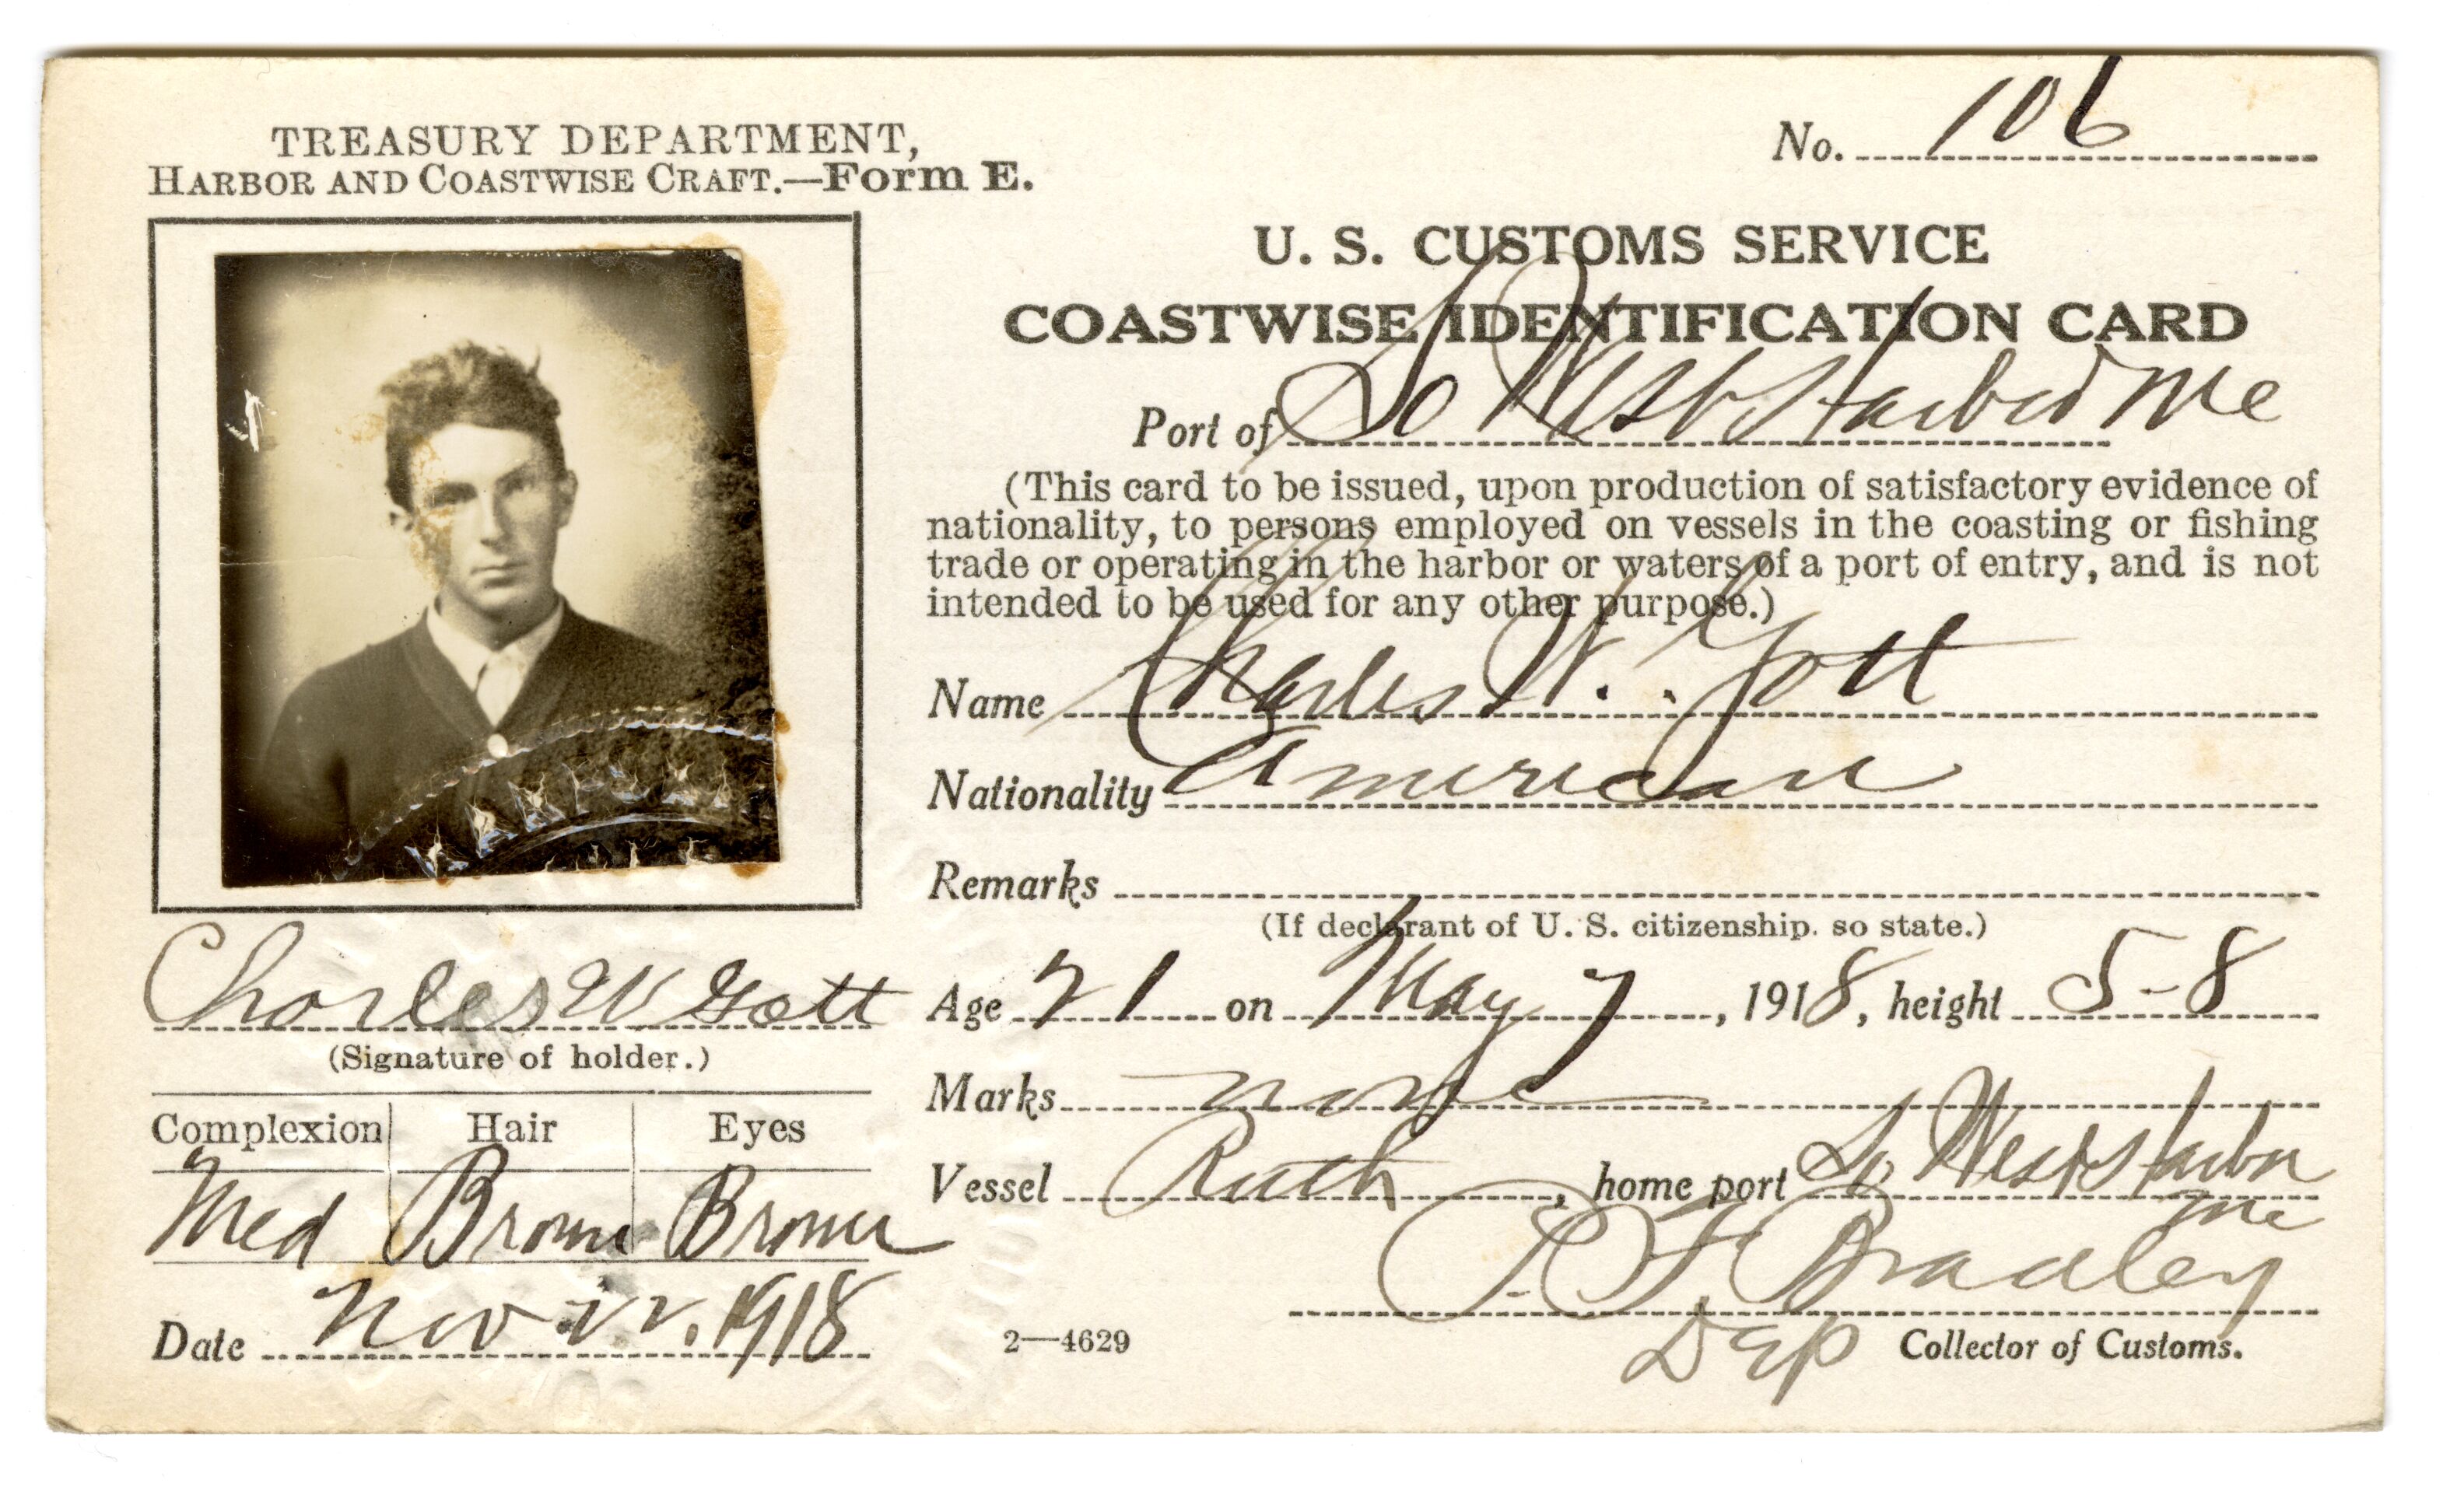 TREASURY DEPARTMENT,
HARBOR AND COASTWISE CRAFT.—Form E.
No. 106
U. S. CUSTOMS SERVICE
COASTWISE IDENTIFICATION CARD
Port of So West Harbor Me
(This card to be issued, upon production of satisfactory evidence of
nationality, to persons employed on vessels in the coasting or fishing
trade or operating in the harbor or waters of a port of entry, and is not
intended to be used for any other purpose.)
Name Charles W. Gott
Nationality American
Remarks
(If declarant of U. S. citizenship. so state.)
Age 21 on May 7, 1918, height 5-8
Marks none
Vessel Ruth, home port So West Harbor
Me
F Bradley
Dep Collector of Customs.
Charles W Gott
(Signature of holder.)
Complexion Hair Eyes
Med Brown Brown
Date Nov 1918
2—4629